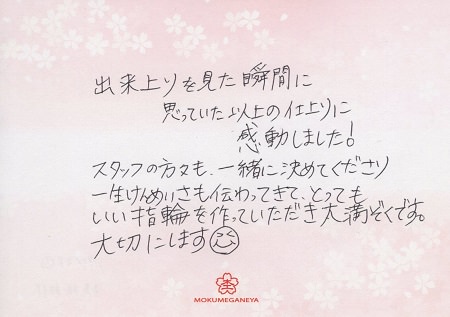 出来上りを見た瞬間に
思っていた以上の仕上りに
感動しました!
スタッフの方々も、一緒に決めてくださり
一生けんめいさも伝わってきて、とっても
いい指輪を作っていただき大満ぞくです。
大切にします
MOKUMEGANEYA